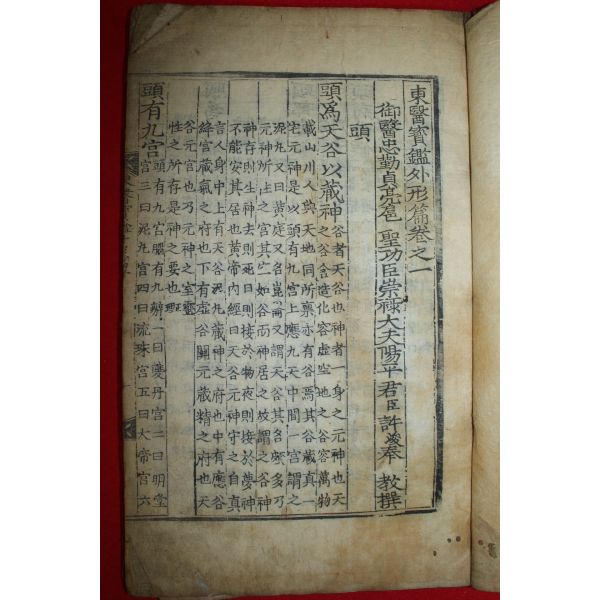 東醫寶鑑外形篇卷之一
御醫忠勤貞亮扈 聖功臣崇祿大夫陽平君臣許浚奉 教撰
頭
頭爲天谷以藏神 谷者天谷也神者一身之元神也天
之谷含造化容虛空地之谷容萬物
載山川人與天地同所禀亦有谷焉其谷藏眞一
宅元神是以頭有九宮上應九天中間一宮謂之
泥丸又曰黃庭又名崑崙又謂天谷其名頗多乃
元神所住之宮其空如谷而神居之故謂之谷神
神存則生神去則死日則接於物夜則接於夢神
不能安其居也黃帝內經曰天谷元神守之自眞
言人身中上有天谷泥丸藏神之府也中有應谷
絳宮藏氣之府也下有虛谷關元藏精之府也天
谷元宮也乃元神之室靈
性之所存是神之要也 正理
頭有九宮 頭有九宮腦有九瓣一曰雙丹宮二曰明堂
宮三曰泥丸宮四曰流珠宮五曰大帝宮六